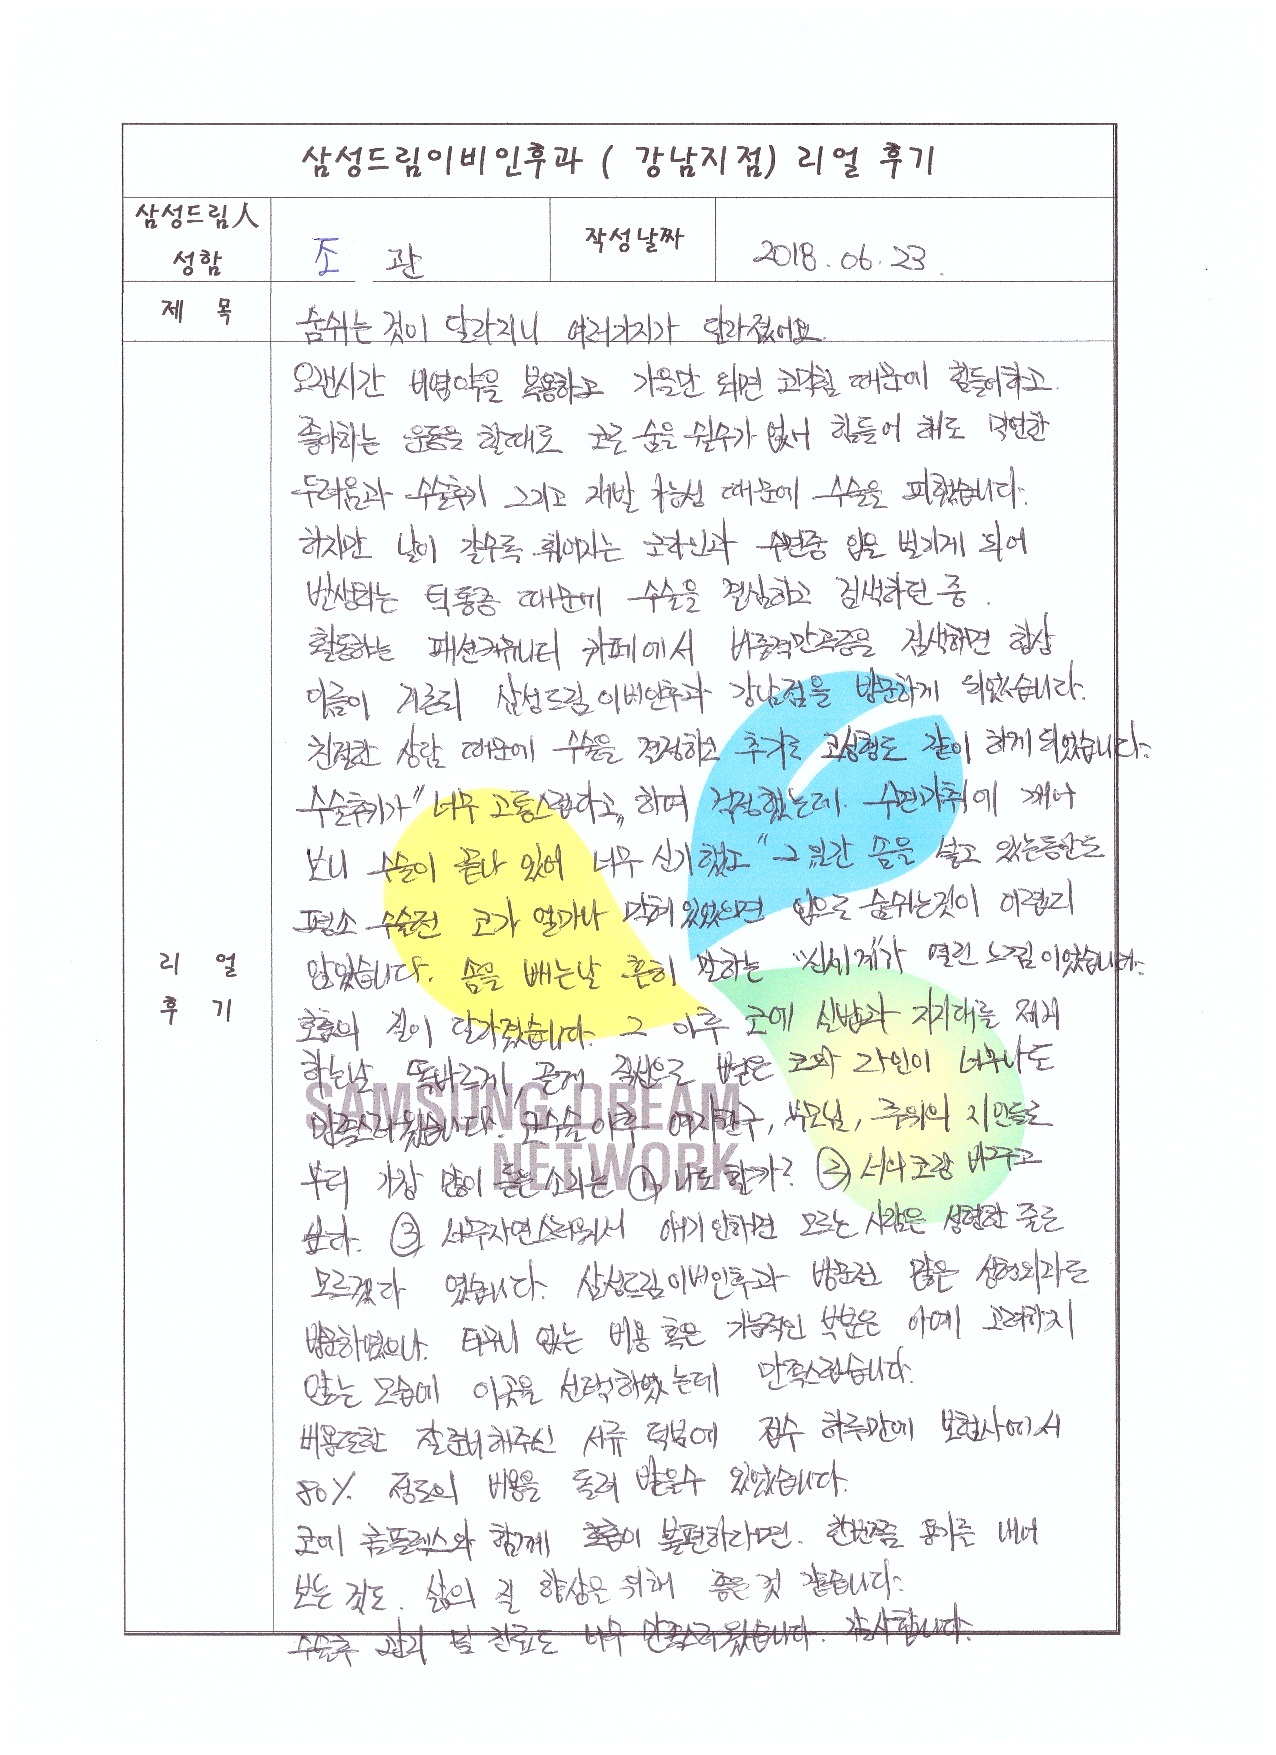 삼성드림이비인후과 ( 강남지점) 리얼 후기
삼성드림人 성함
조 관
작성날짜
2018. 06. 23.
제 목
숨쉬는 것이 달라지니 여러가지가 달라졌어요.
리 얼 후 기
오랜시간 비염약을 복용하고 가을만 되면 코막힘 때문에 힘들어하고.
좋아하는 운동을 할때로 코로 숨을 쉴수가 없어 힘들어 해도 막연한
두려움과 수술후기 그리고 재발 가능성 때문에 수술을 피했습니다.
하지만 날이 갈수록 휘어지는 코라인과 수면중 입을 벌기게 되어
발생되는 턱통증 때문에 수술을 결심하고 검색하던 중.
활동하는 패션커뮤니티 카페에서 비중격만곡증을 검색하면 항상
이름이 거론되 삼성드림이비인후과 강남점을 방문하게 되었습니다.
친절한 상담 때문에 수술을 결정하고 추가로 코성형도 같이 하게 되었습니다.
수술후기가 "너무 고통스럽다고" 하며 걱정했는데. 수면마취에 깨너
보니 수술이 끝나 있어 너무 신기했고 " 그 일간 솜을 넣고 있는동안도
평소 수술전 코가 얼마나 막혀있었으면 입으로 숨쉬는것이 어렵지
않았습니다. 솜을 빼는날 흔히 말하는 "신세계"가 열린 느낌이었습니다.
호흡의 질이 달라졌습니다. 그 이후 코에 실밥과 지지대를 제거
하는날 똑바르게, 곧게 직선으로 뻗은 코와 라인이 너무나도
만족스러웠습니다. 코수술이후 여자친구, 부모님, 주위의 지인들로
부터 가장 많이 들은 소리는 ① 나도 할까? ② 너의 코랑 바꾸고
싶다. ③ 너무자연스러워서 얘기안하면 모르는 사람은 성형한 줄은
모르겠다 였습니다. 삼성드림이비인후과 방문전 많은 성형외과를
방문하였으나. 터무니 없는 비용 혹은 기능적인 부분은 아예 고려하지
않는 모습에 이곳을 선택하였는데 만족스럽습니다.
비용또한 잘준비해주신 서류 덕분에 접수 하루만에 보험사에서
80% 정도의 비용을 돌려 받을수 있었습니다.
코에 콤플렉스와 함께 호흡이 불편하다면. 한번쯤 용기를 내어
보는 것도. 삶의 질 향상을 위해 좋은 것 같습니다.
수술후 관리 및 진료도 너무 만족스러웠습니다. 감사합니다.
SAMSUNG DREAM
NETWORK